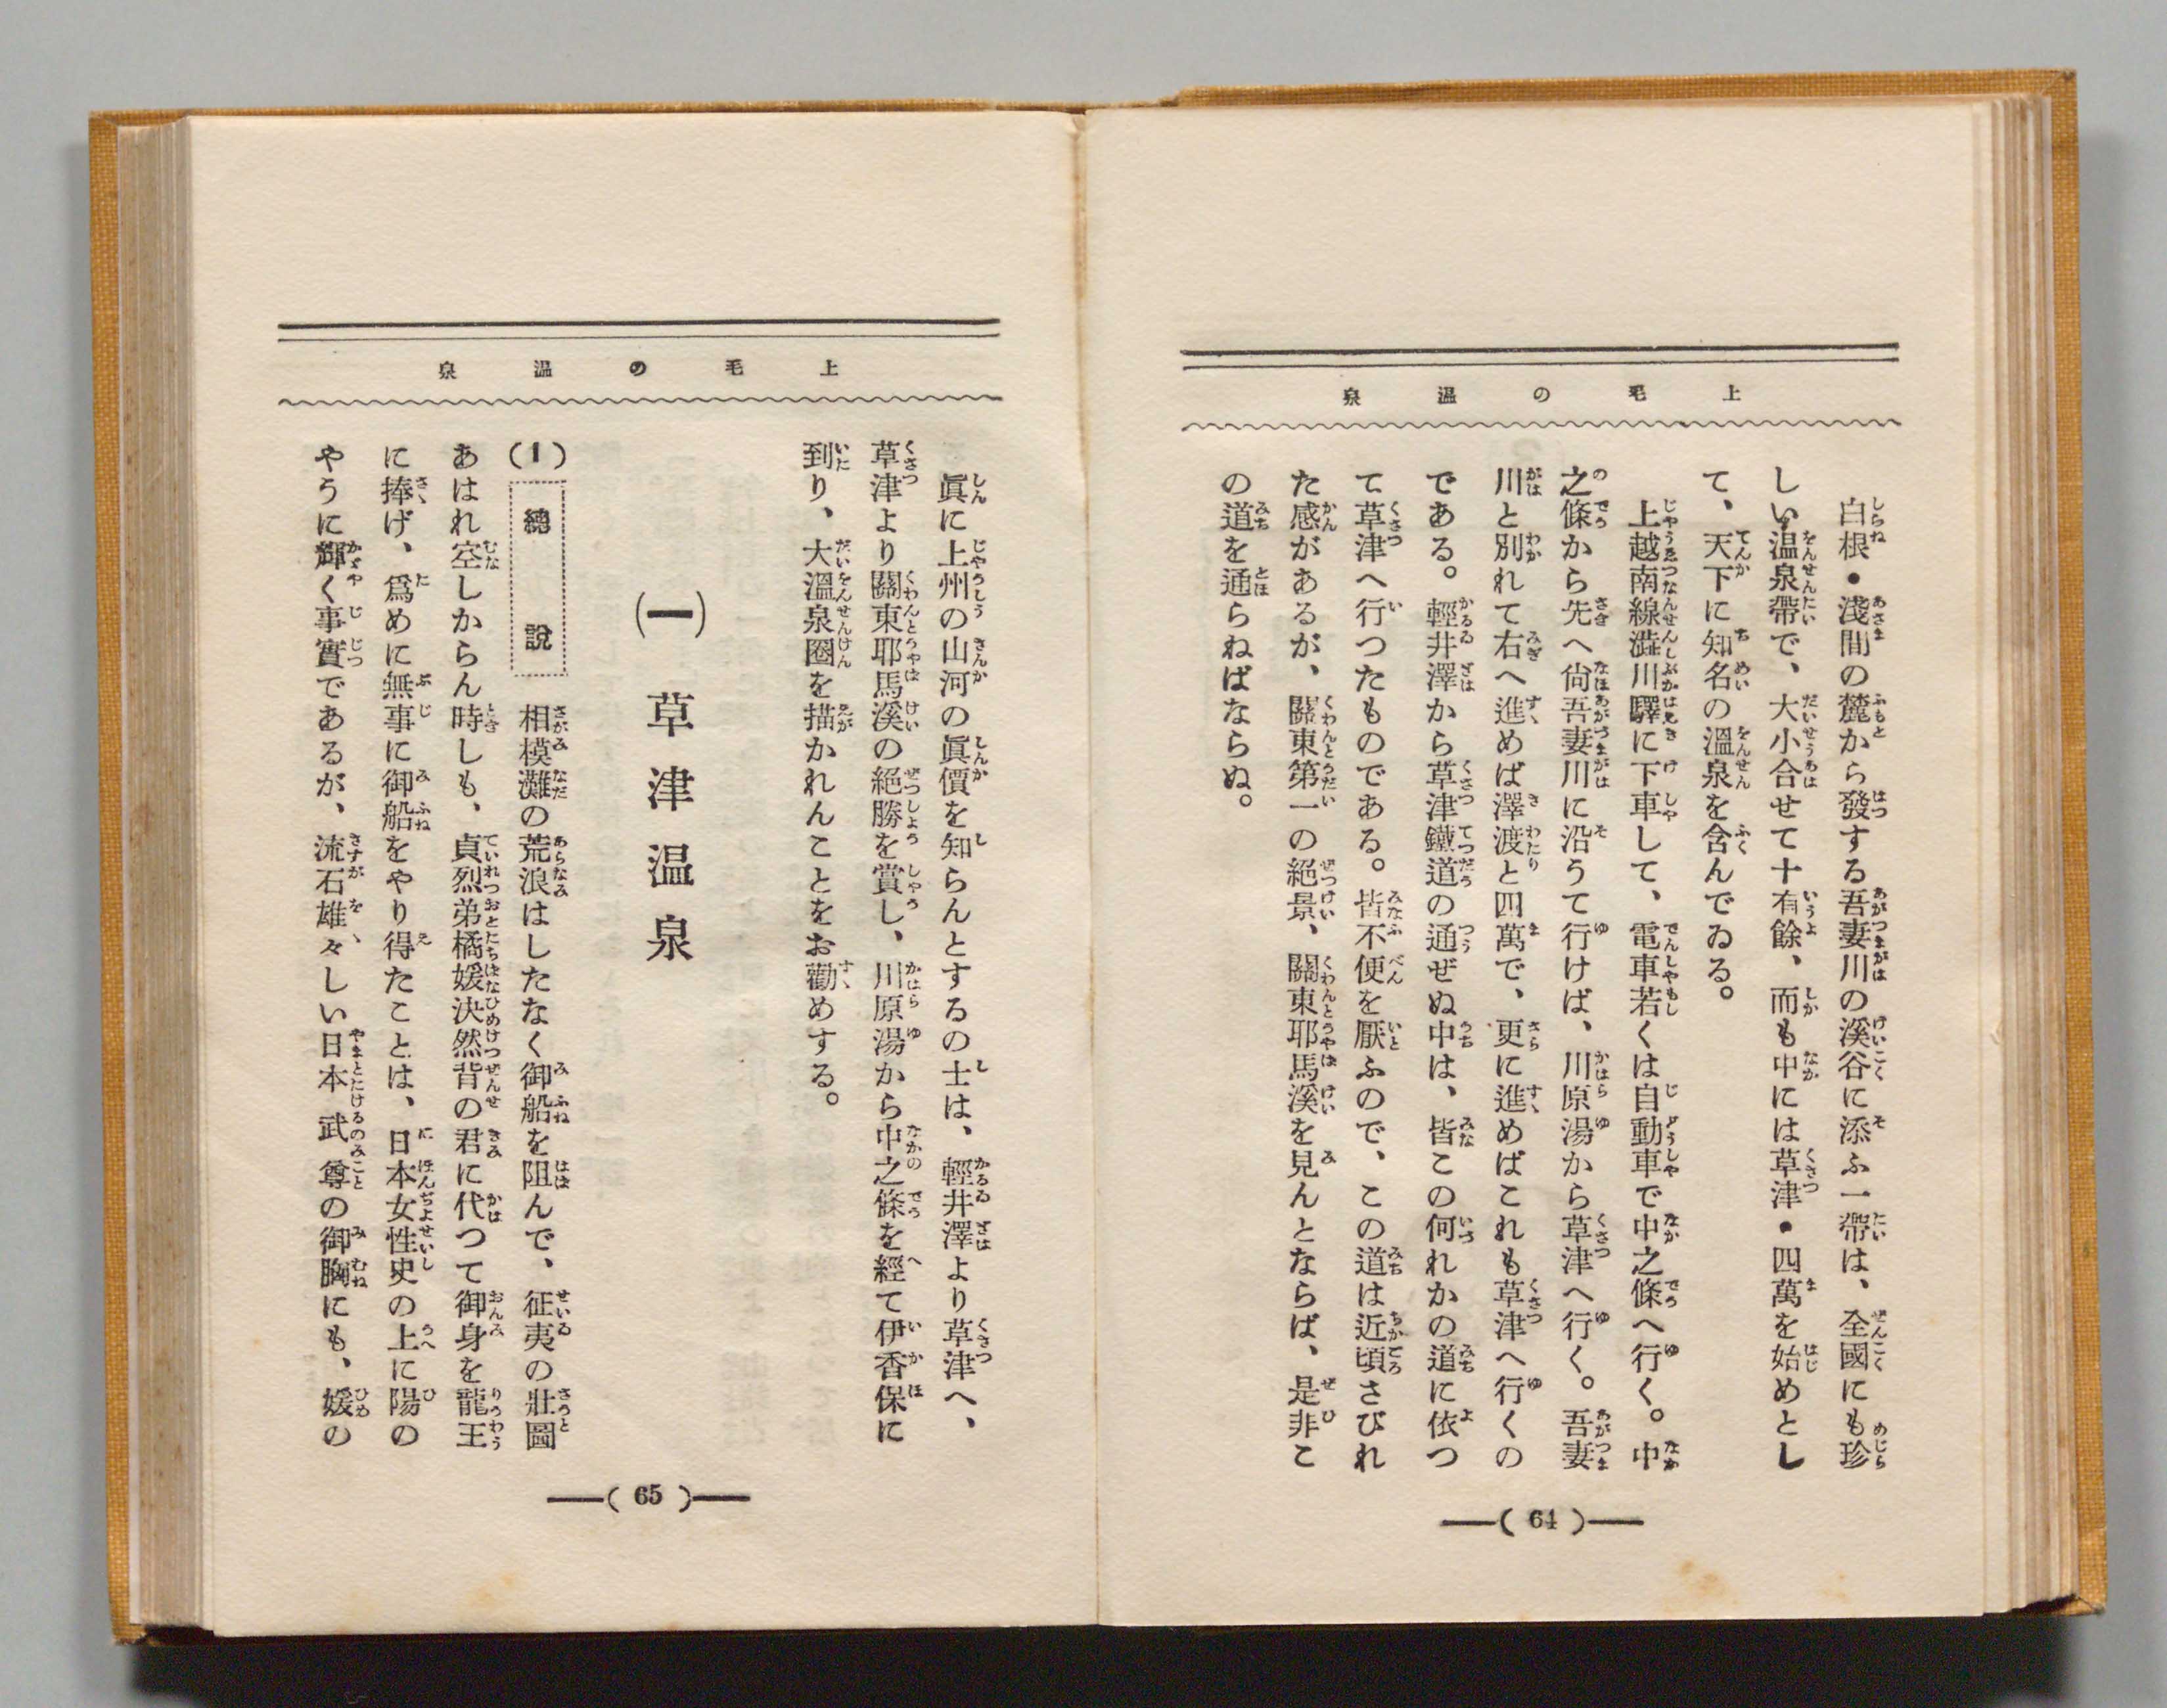 上毛の温泉
白根・淺間の麓から發する吾妻川の溪谷に添ふ一帶は、全國にも珍
しい温泉帶で、大小合せて十有餘、而も中には草津・四萬を始めとし
て、天下に知名の溫泉を含んでゐる。
上越南線澁川驛に下車して、電車若くは自動車で中之條へ行く。中
之條から先へ尙吾妻川に沿うて行けば、川原湯から草津へ行く。吾妻
川と別れて右へ進めば澤渡と四萬で、更に進めばこれも草津へ行くの
である。輕井澤から草津鐵道の通ぜぬ中は、皆この何れかの道に依つ
て草津へ行つたものである。皆不便を厭ふので、この道は近頃さびれ
た感があるが、關東第一の絕景、關東耶馬溪を見んとならば、是非こ
の道を通らねばならぬ。
(64)
上毛の温泉
眞に上州の山河の眞價を知らんとするの士は、輕井澤より草津へ、
草津より關東耶馬溪の絕勝を賞し、川原湯から中之條を經て伊香保に
到り、大溫泉圈を描かれんことをお勸めする。
(一) 草津温泉
(1) 總說 相模灘の荒浪はしたなく御船を阻んで、征夷の壯圖
あはれ空しからん時しも、貞烈弟橘媛決然背の君に代つて御身を龍王
に捧げ、爲めに無事に御船をやり得たことは、日本女性史の上に陽の
やうに輝く事實であるが、流石雄々しい日本武尊の御胸にも、媛の
(65)